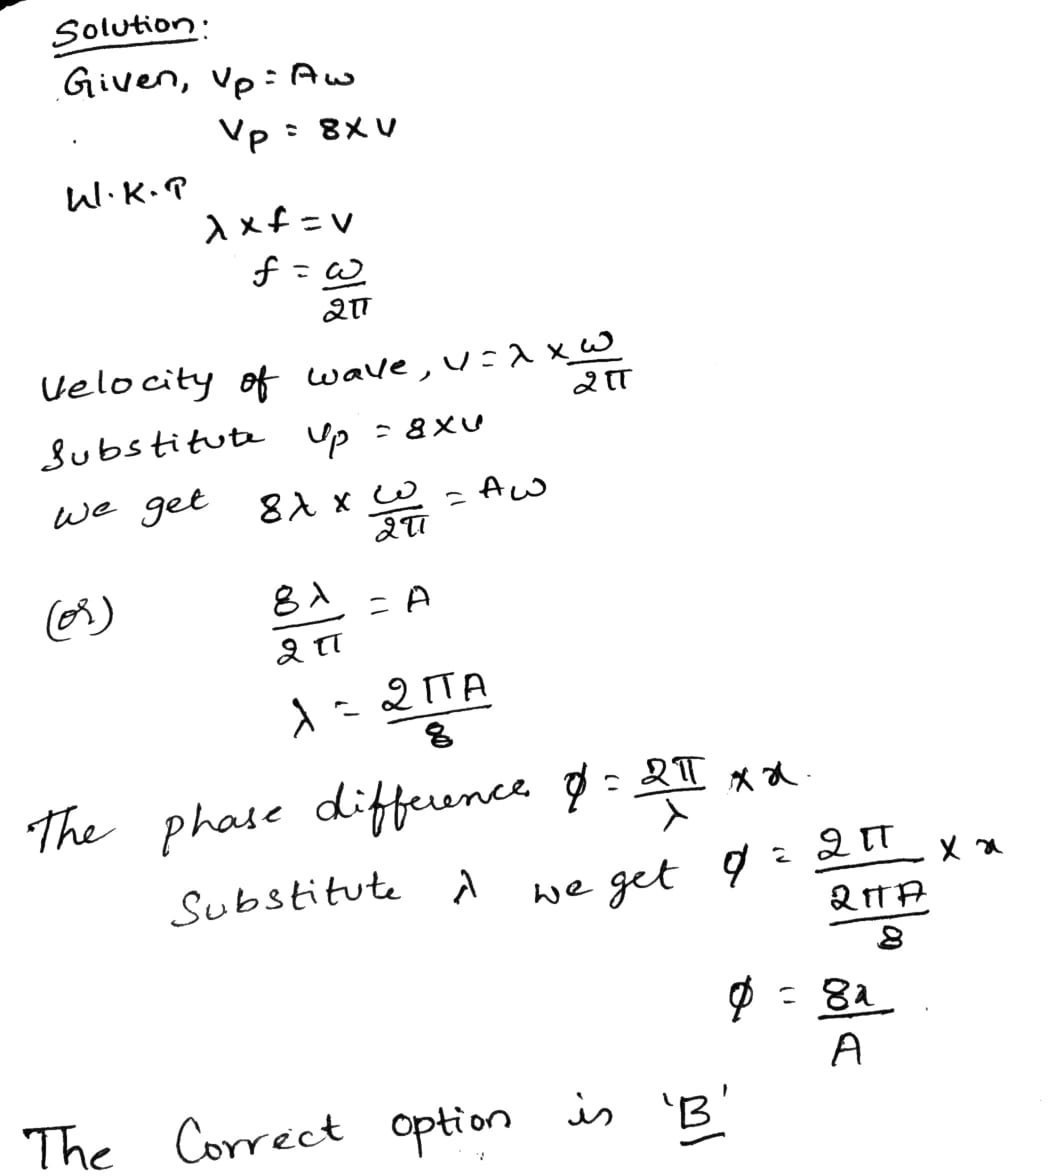 Solution:
Given, Vp = Aω
Vp = 8×v
W.K.T
λ×f = v
f = ω/2π
Velocity of wave, v = λ × ω/2π
Substitute vp = 8×v
we get 8λ × ω/2π = Aω
(or) 8λ/2π = A
λ = 2πA/8
The phase difference ϕ = 2π/λ × x.
Substitute λ we get ϕ = 2π/(2πA/8) × x
ϕ = 8x/A
The Correct option is 'B'